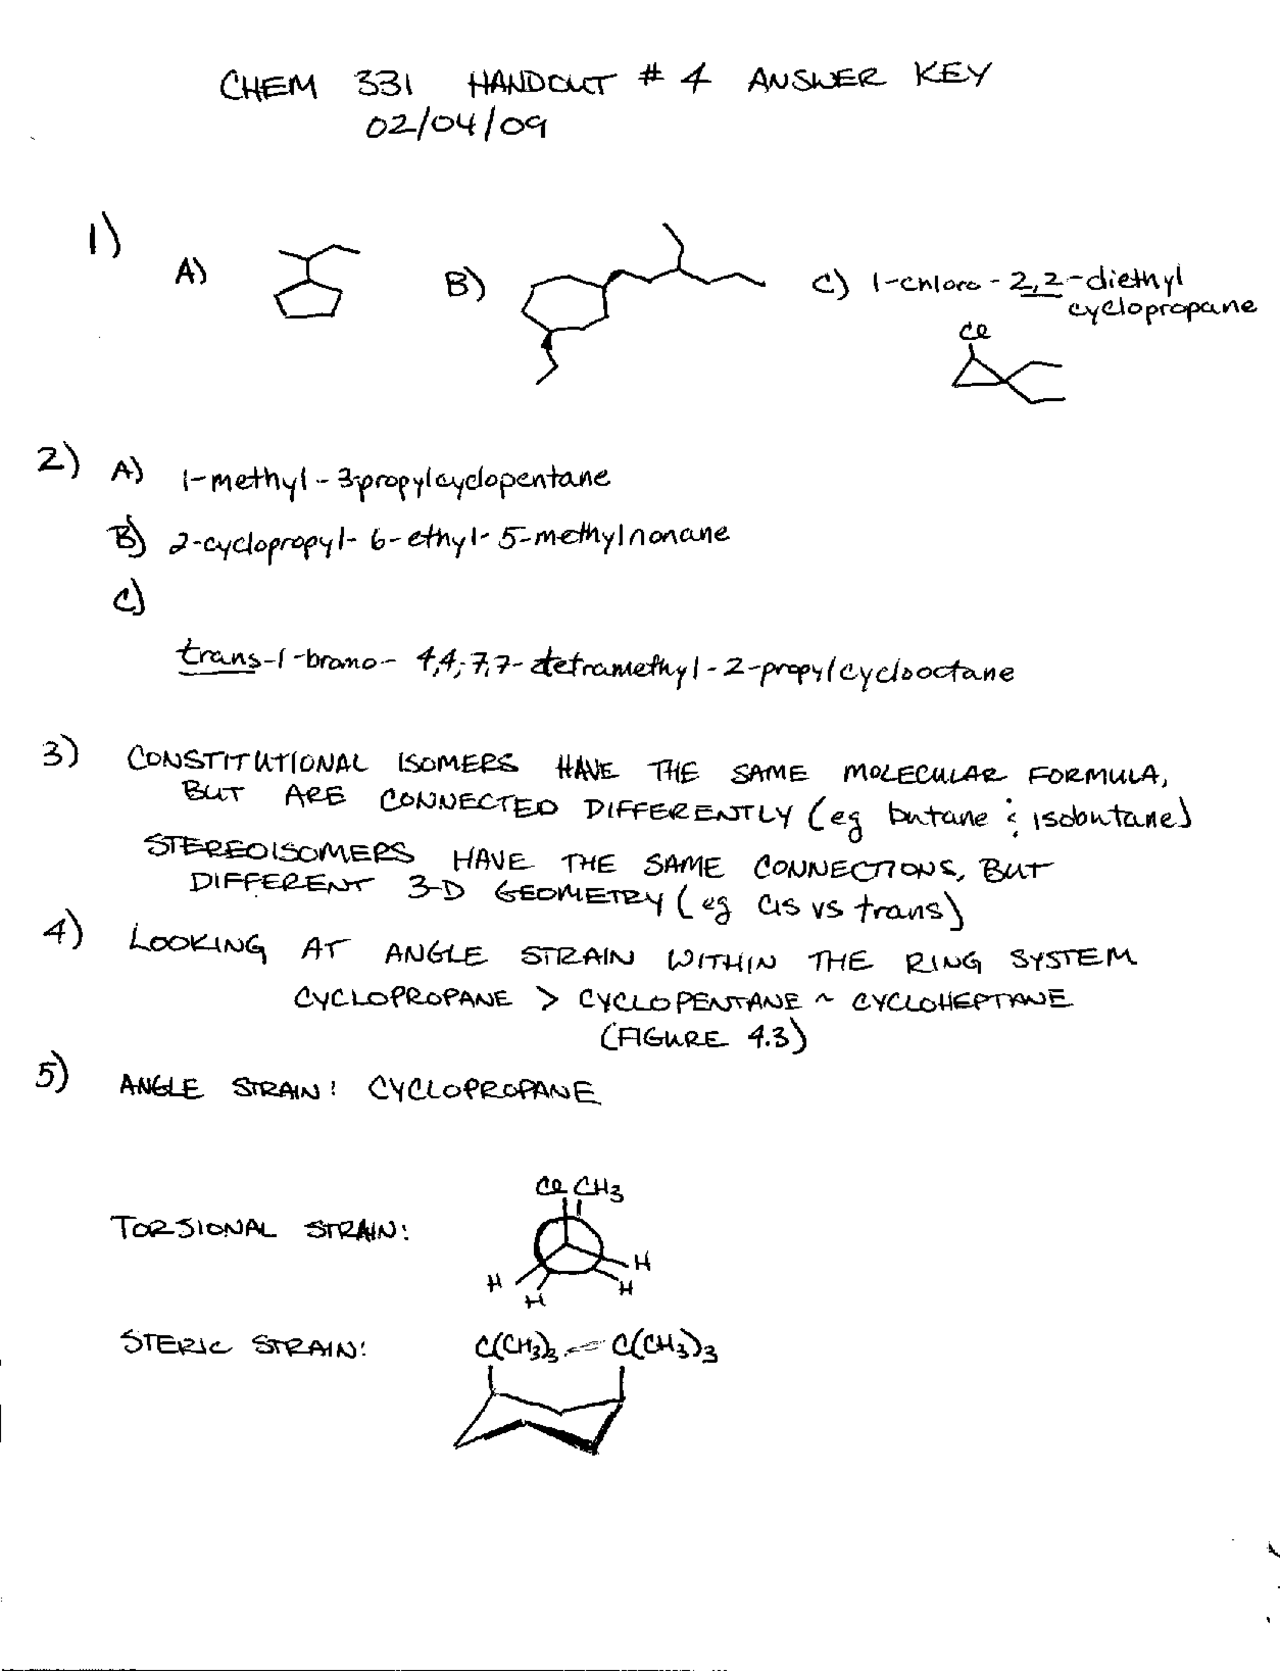 CHEM 331 HANDOUT # 4 ANSWER KEY
02/04/09
1)
A)
B)
C) 1-chloro-2,2-diethyl
cyclopropane
Cl
2) A) 1-methyl-3-propylcyclopentane
B) 2-cyclopropyl-6-ethyl-5-methylnonane
C)
trans-1-bromo-4,4,7,7-tetramethyl-2-propylcyclooctane
3) CONSTITUTIONAL ISOMERS HAVE THE SAME MOLECULAR FORMULA,
BUT ARE CONNECTED DIFFERENTLY (eg butane & isobutane)
STEREOISOMERS HAVE THE SAME CONNECTIONS, BUT
DIFFERENT 3-D GEOMETRY (eg cis vs trans)
4) LOOKING AT ANGLE STRAIN WITHIN THE RING SYSTEM
CYCLOPROPANE > CYCLOPENTANE ~ CYCLOHEPTANE
(FIGURE 4.3)
5) ANGLE STRAIN: CYCLOPROPANE
Cl CH3
TORSIONAL STRAIN:
H H
H H
STERIC STRAIN: C(CH3)3 C(CH3)3